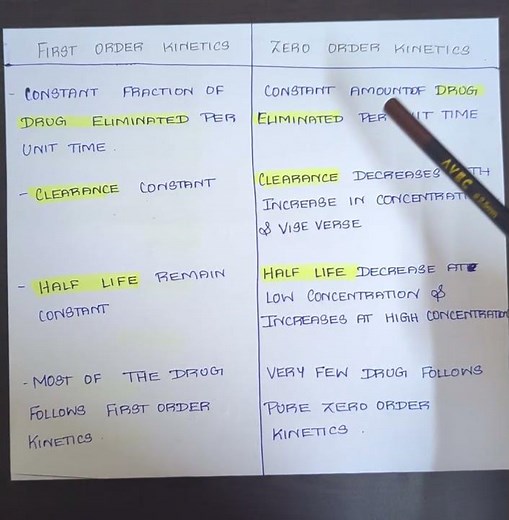 FIRST ORDER KINETICS
- CONSTANT FRACTION OF
DRUG ELIMINATED PER
UNIT TIME.
- CLEARANCE CONSTANT
- HALF LIFE REMAIN
CONSTANT
- MOST OF THE DRUG
FOLLOWS FIRST ORDER
KINETICS.
ZERO ORDER KINETICS
CONSTANT AMOUNT OF DRUG
ELIMINATED PER UNIT TIME
CLEARANCE DECREASES
INCREASE IN
& VISE VERSE
HALF LIFE DECREASE AT
LOW CONCENTRATION &
INCREASES AT HIGH CONCENTRATION
VERY FEW DRUG FOLLOWS
PURE ZERO ORDER
KINETICS.
AVEC